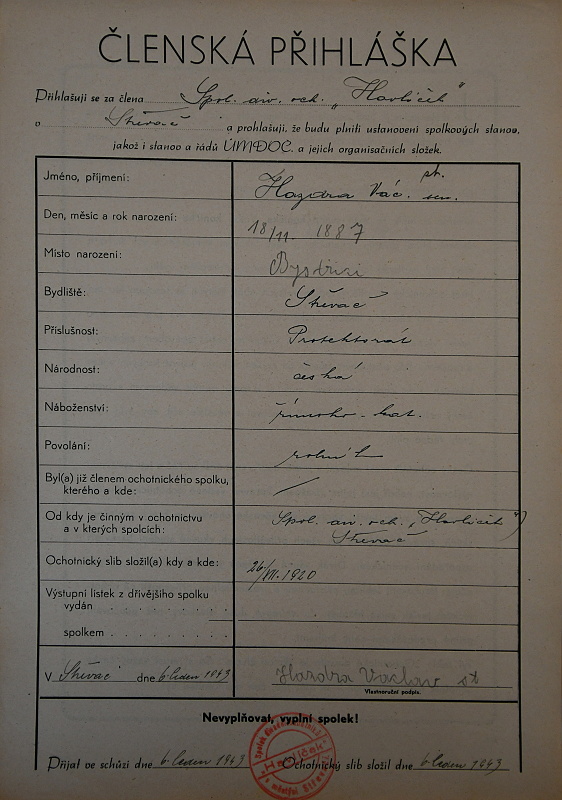 ČLENSKÁ PŘIHLÁŠKA
Přihlašuji se za člena Spol. div. och. „Havlíček"
v Střevač a prohlašuji, že budu plniti ustanovení spolkových stanov,
jakož i stanov a řádů ÚMDOC. a jejich organisačních složek.
Jméno, příjmení: Hazdra Vác. st. sen.
Den, měsíc a rok narození: 18/11. 1887
Místo narození: Bystřici
Bydliště: Střevač
Příslušnost: Protektorát
Národnost: česká
Náboženství: římsko-kat.
Povolání: rolník
Byl(a) již členem ochotnického spolku,
kterého a kde: /
Od kdy je činným v ochotnictvu Spol. div. och. „Havlíček"
a v kterých spolcích: Střevač
Ochotnický slib složil(a) kdy a kde: 26/VII. 1920
Výstupní lístek z dřívějšího spolku
vydán . . . . . . . . . .
spolkem . . . . . . . . . .
V Střevač dne 6. leden 1943 Hazdra Václav st
Vlastnoruční podpis.
Nevyplňovat, vyplní spolek!
Přijat ve schůzi dne 6. leden 1943 Ochotnický slib složil dne 6. leden 1943
Havlíček